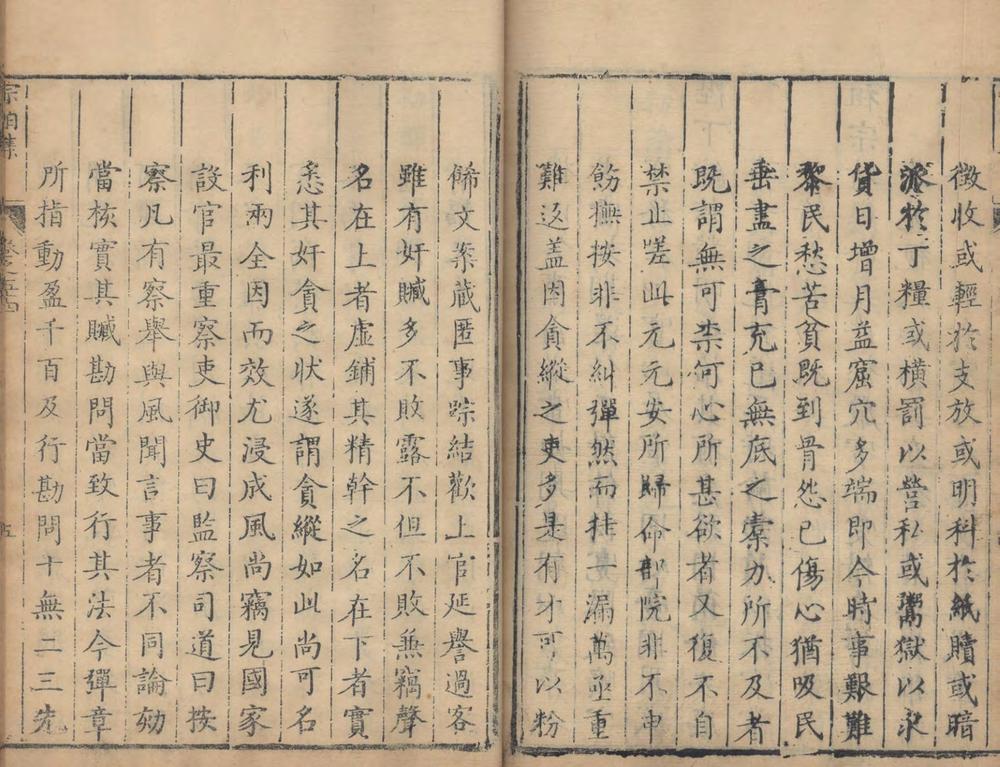 徵收或輕於支放或明科於紙贖或暗
派於丁糧或橫罰以營私或鬻獄以求
貨日增月益窟穴多端即今時事艱難
黎民愁苦貧既到骨怨已傷心猶吸民
垂盡之膏充已無底之橐力所不及者
既謂無可柰何心所甚欲者又復不自
禁止嗟此元元安所歸命部院非不申
飭撫按非不糾彈然而挂一漏萬亟重
難返盖因貪縱之吏多是有才可以粉
餙文案蔵匿事踪結歡上官延譽過客
雖有奸贓多不敗露不但不敗兼竊聲
名在上者虛鋪其精幹之名在下者實
悉其奸貪之狀遂謂貪縱如此尚可名
利兩全因而效尤浸成風尚竊見國家
設官最重察吏御史曰監察司道曰按
察凡有察舉與風聞言事者不同論劾
當核實其贓勘問當致行其法今彈章
所指動盈千百及行勘問十無二三先
宗伯集
卷之五十四
五